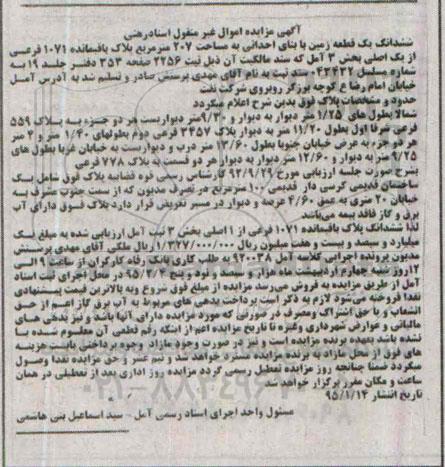 آگهی مزایده اموال غیر منقول اسنادرهنی
ششدانگ یک قطعه زمین با بنای احداثی به مساحت ۲۰۷ مترمربع پلاک باقیمانده ۱۰۷۱ فرعی
از یک اصلی بخش ۳ آمل که سند مالکیت آن ذیل ثبت ۲۲۵۶ صفحه ۳۵۳ دفتر جلد ۱۹ به
شماره مسلسل ۰۴۳۴۳۲ سند ثبت به نام آقای مهدی پرستش صادر و تسلیم شد به آدرس آمل
خیابان امام رضا ع کوچه برزگر روبروی شرکت نفت
حدود و مشخصات پلاک فوق بدین شرح اعلام میگردد
شمالا بطول های ۱/۲۵ متر دیوار به دیوار و ۹/۳۰متر دیواریست هر دو جزء به پلاک ۵۵۹
فرعی شرقا اول بطول ۱۱/۲۰ متر به دیوار پلاک ۳۴۵۷ فرعی دوم بطولهای ۱/۴۰ متر و ۴ متر
هر دو جزء به عرض خیابان جنوبا بطول ۱۳/۶۰ متر درب و دیواریست به خیابان غربا بطول های
۹/۲۵ متر به دیوار و ۱۲/۶۰ متر دیوار به دیوار هر دو قسمت به پلاک ۷۷۸ فرعی
بشرح صورت جلسه ارزیابی مورخ ۹۴/۹/۲۹ کارشناس رسمی قوه قضاییه پلاک فوق شامل یک
ساختمان قدیمی کرسی دار قدیمی ۱۰۰ مترمربع در تصرف مدیون که از سمت جنوب مشرف به
خیابان ۲۰ متری به عمق ۴/۶۰ عرصه و دیوار در مسیر تعریض قرار دارد پلاک فسوق دارای آب
برق و گاز فاقد بیمه می‌باشد
لذا ششدانگ پلاک باقیمانده ۱۰۷۱ فرعی از ۱ اصلی بخش ۳ ثبت آمل ارزیابی شده به مبلغ یک
میلیارد و سیصد و بیست و هفت میلیون ریال ۱/۳۲۷/۰۰۰/۰۰۰ ریال ملکی آقای مهدی پرستش
مدیون پرونده اجرایی کلاسه آمل ۹۲۰۰۳۸ به طلب کاری بانک رفاه کارگران از ساعت ۹ الی
۱۲روز شنبه چهارم اردیبهشت ماه هزار و سیصد و نود و پنج ۹۵/۲/۴ در محل اجرای ثبت اسناد
آمل از طریق مزایده به فروش می‌رسد مزایده از مبلغ فوق شروع وبه بالاترین قیمت پیشنهادی
نقدا فروخته می‌شود لازم به ذکر است پرداخت بدهی های مربوط به آب برق گاز اعم از حق
انشعاب و یا حق اشتراک ومصرف در صورتی که مورد مزایده دارای آنها باشد ونیز بدهی های
مالیاتی و عوارض شهرداری وغیره تا تاریخ مزایده اعم از اینکه رقم قطعی آن معلوم شده یا
نشده باشد بعهده برنده مزایده است و نیز در صورت وجود مازاد وجوه پرداختی بابت هزینه
های فوق از محل مازاد به برنده مزایده مسترد خواهد شد و نیم عشر و حق مزایده نقدا وصول
میگردد ضمنا چنانچه روز مزایده تعطیل رسمی گردد مزایده روز اداری بعد از تعطیلی در همان
ساعت و مکان مقرر برگزار خواهد شد
تاریخ انتشار ۹۵/۱/۱۴
مسئول واحد اجرای اسناد رسمی آمل - سید اسماعیل بنی هاشمی